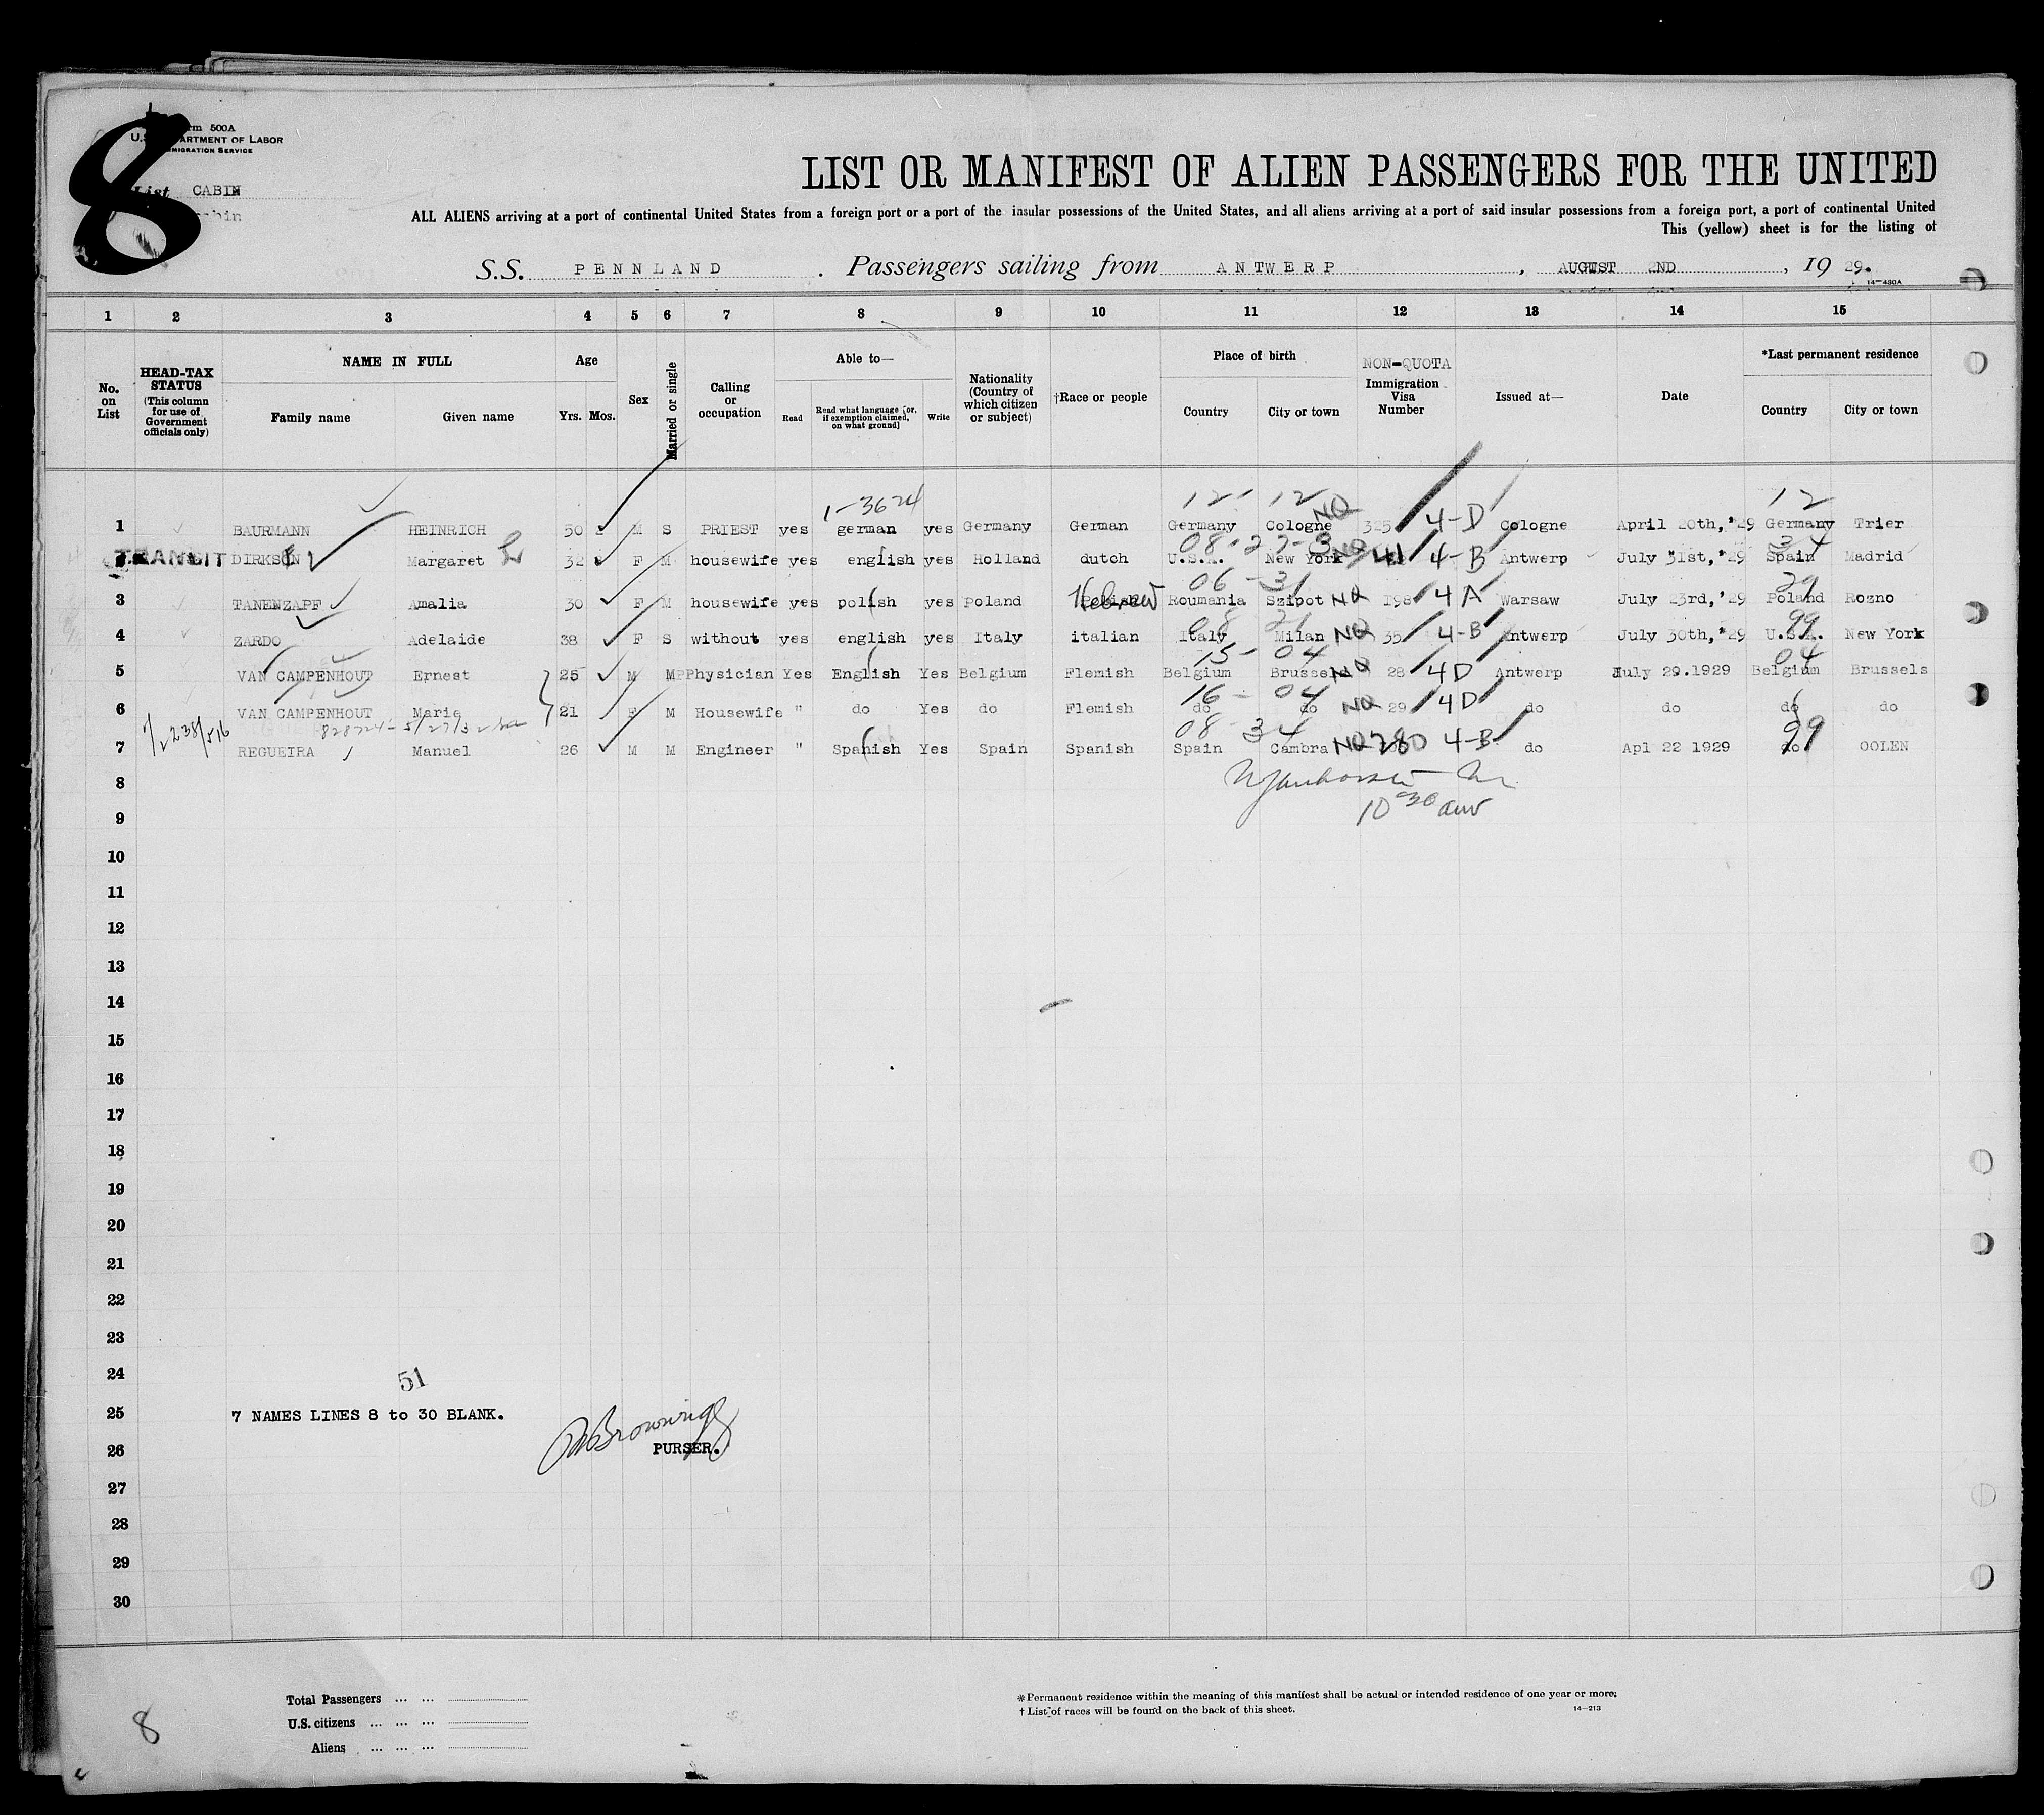 8
Form 500A
U.S. DEPARTMENT OF LABOR
IMMIGRATION SERVICE
List CABIN
LIST OR MANIFEST OF ALIEN PASSENGERS FOR THE UNITED
ALL ALIENS arriving at a port of continental United States from a foreign port or a port of the insular possessions of the United States, and all aliens arriving at a port of said insular possessions from a foreign port, a port of continental United
This (yellow) sheet is for the listing of
S.S. PENNLAND. Passengers sailing from ANTWERP, AUGUST 2ND, 19 29.
14—430A
1 2 3 4 5 6 7 8 9 10 11 12 13 14 15
No. on List
HEAD-TAX STATUS (This column for use of Government officials only)
NAME IN FULL Family name Given name
Age Yrs. Mos.
Sex
Married or single
Calling or occupation
Able to— Read Read what language [or, if exemption claimed, on what ground] Write
Nationality (Country of which citizen or subject)
†Race or people
Place of birth Country City or town
NON-QUOTA Immigration Visa Number
Issued at—
Date
*Last permanent residence Country City or town
1-3624 12- 12 NQ 12
1 BAURMANN HEINRICH 50 M S PRIEST yes german yes Germany German Germany Cologne 325 4-D Cologne April 20th,'29 Germany Trier
08-2 NQ 34
TRANSIT DIRKSEN Margaret L 32 F M housewife yes english yes Holland dutch U.S.A. New York 41 4-B Antwerp July 31st,'29 Spain Madrid
06-31 29
3 TANENZAPF Amalia 30 F M housewife yes polish yes Poland Hebrew Roumania Szipot NQ 198 4A Warsaw July 23rd,'29 Poland Rozno
08 21 99
4 ZARDO Adelaide 38 F S without yes english yes Italy italian Italy Milan NQ 35 4-B Antwerp July 30th,'29 U.S.A. New York
15- 04 04
5 VAN CAMPENHOUT Ernest 25 M M Physician Yes English Yes Belgium Flemish Belgium Brussels NQ 28 4D Antwerp July 29.1929 Belgium Brussels
16- 04
6 VAN CAMPENHOUT Marie 21 F M Housewife " do Yes do Flemish do do NQ 29 4D do do do do
08 34 99
7 REGUEIRA Manuel 26 M M Engineer " Spanish Yes Spain Spanish Spain Cambra NQ 280 4-B do Apl 22 1929 do OOLEN
8
9 10 30 am
10
11
12
13
14
15
16
17
18
19
20
21
22
23
24 51
25 7 NAMES LINES 8 to 30 BLANK.
Browning
26 PURSER.
27
28
29
30
Total Passengers ... ...
U.S. citizens ... ... ...
Aliens ... ... ...
*Permanent residence within the meaning of this manifest shall be actual or intended residence of one year or more.
†List of races will be found on the back of this sheet.
14—213
8